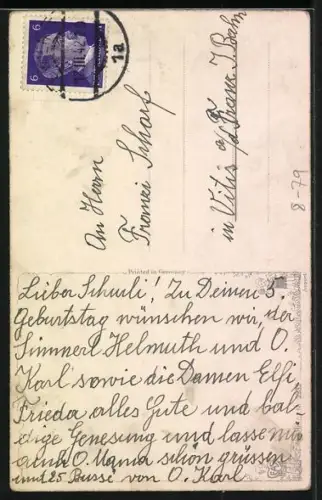 6 6
1a
An Herrn
Franzi Scharf
in Vitis a/d Franz. J. Bahn
8-79
Printed in Germany
Lieber Schurli! Zu Deinen 5.
Geburtstag wünschen wir, der
Simmerl Helmuth und O.
Karl sowie die Damen Elfi
Frieda alles Gute und bal-
dige Genesung und lasse mir
auch O. Mama schön grüssen
und 25 Bussi von O. Karl